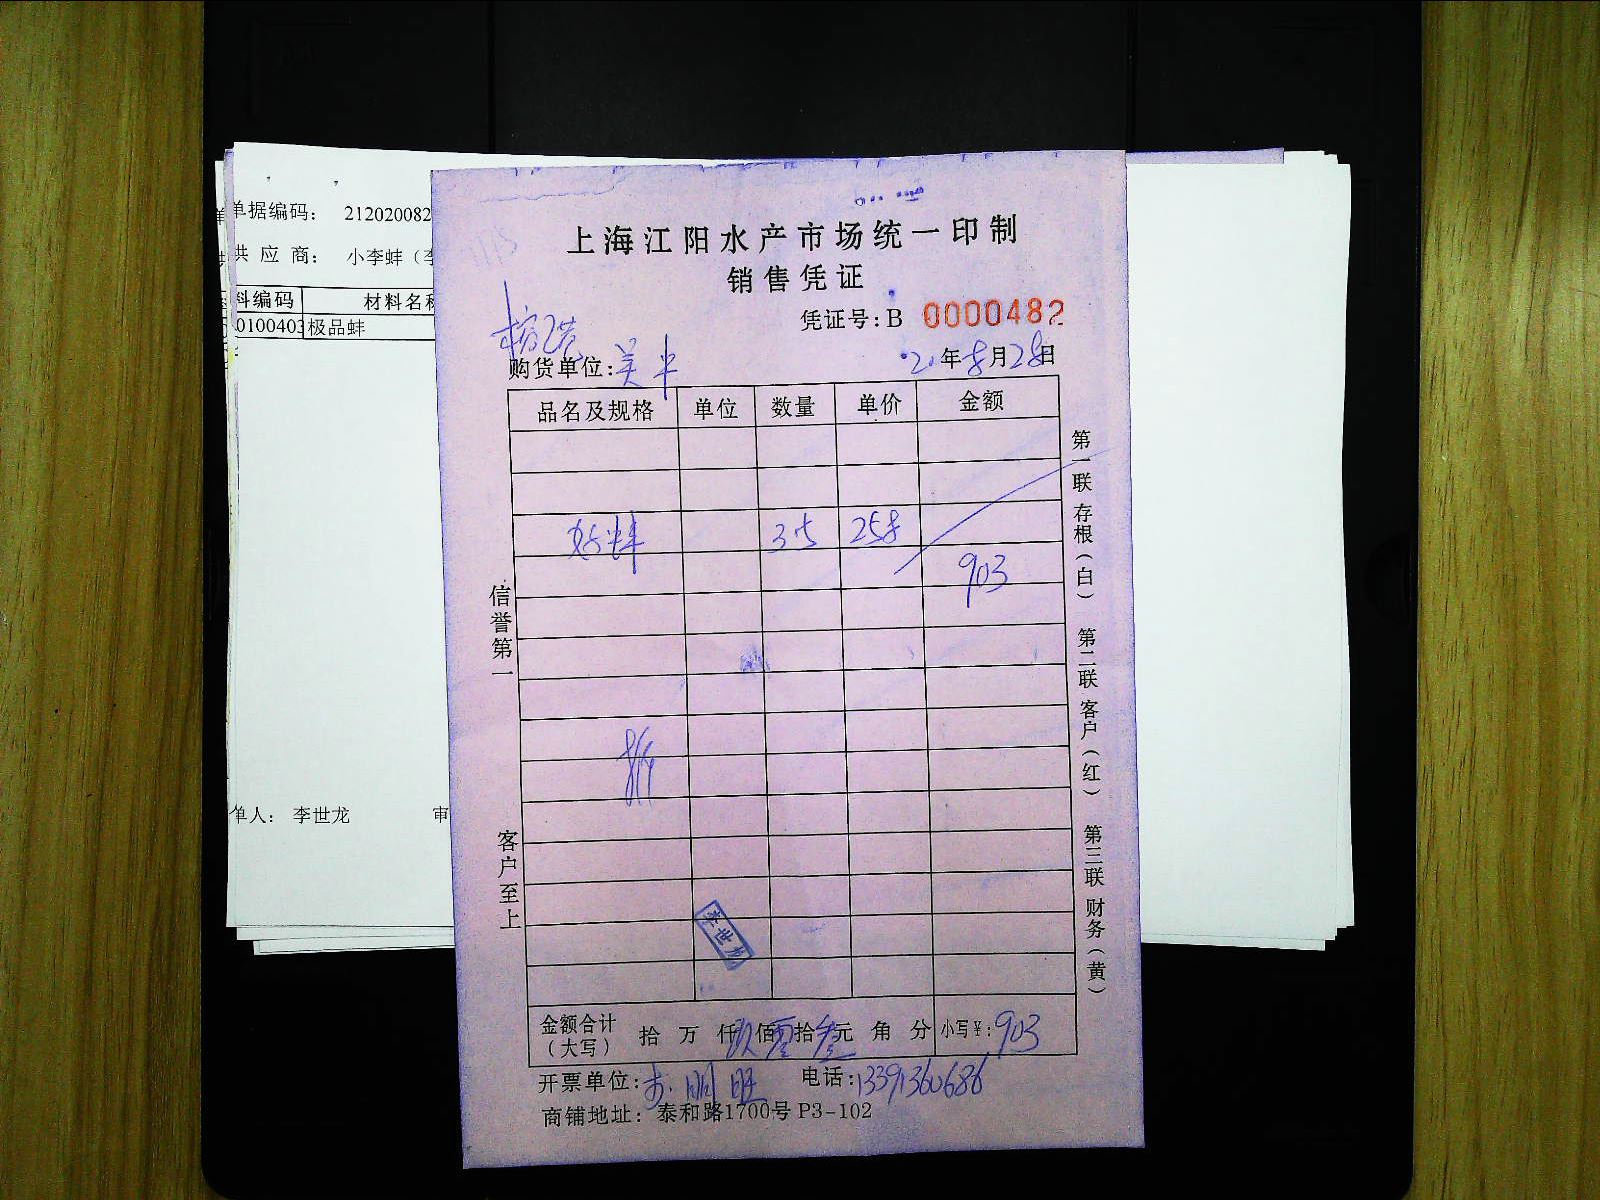 单据编码： 212020082
供 应 商： 小李蚌（李
料编码 材料名称
0100403 极品蚌
单人： 李世龙 审
上海江阳水产市场统一印制
销售凭证
凭证号：B 0000482
购货单位：
20年8月28日
品名及规格 单位 数量 单价 金额
好蚌 3.5 258
903
信誉第一
客户至上
李世龙
第一联 存根（白） 第二联 客户（红） 第三联 财务（黄）
金额合计（大写） 拾 万 仟 玖佰 零拾 叁元 角 分 小写￥：903
开票单位： 电话：13391360686
商铺地址： 泰和路1700号 P3-102